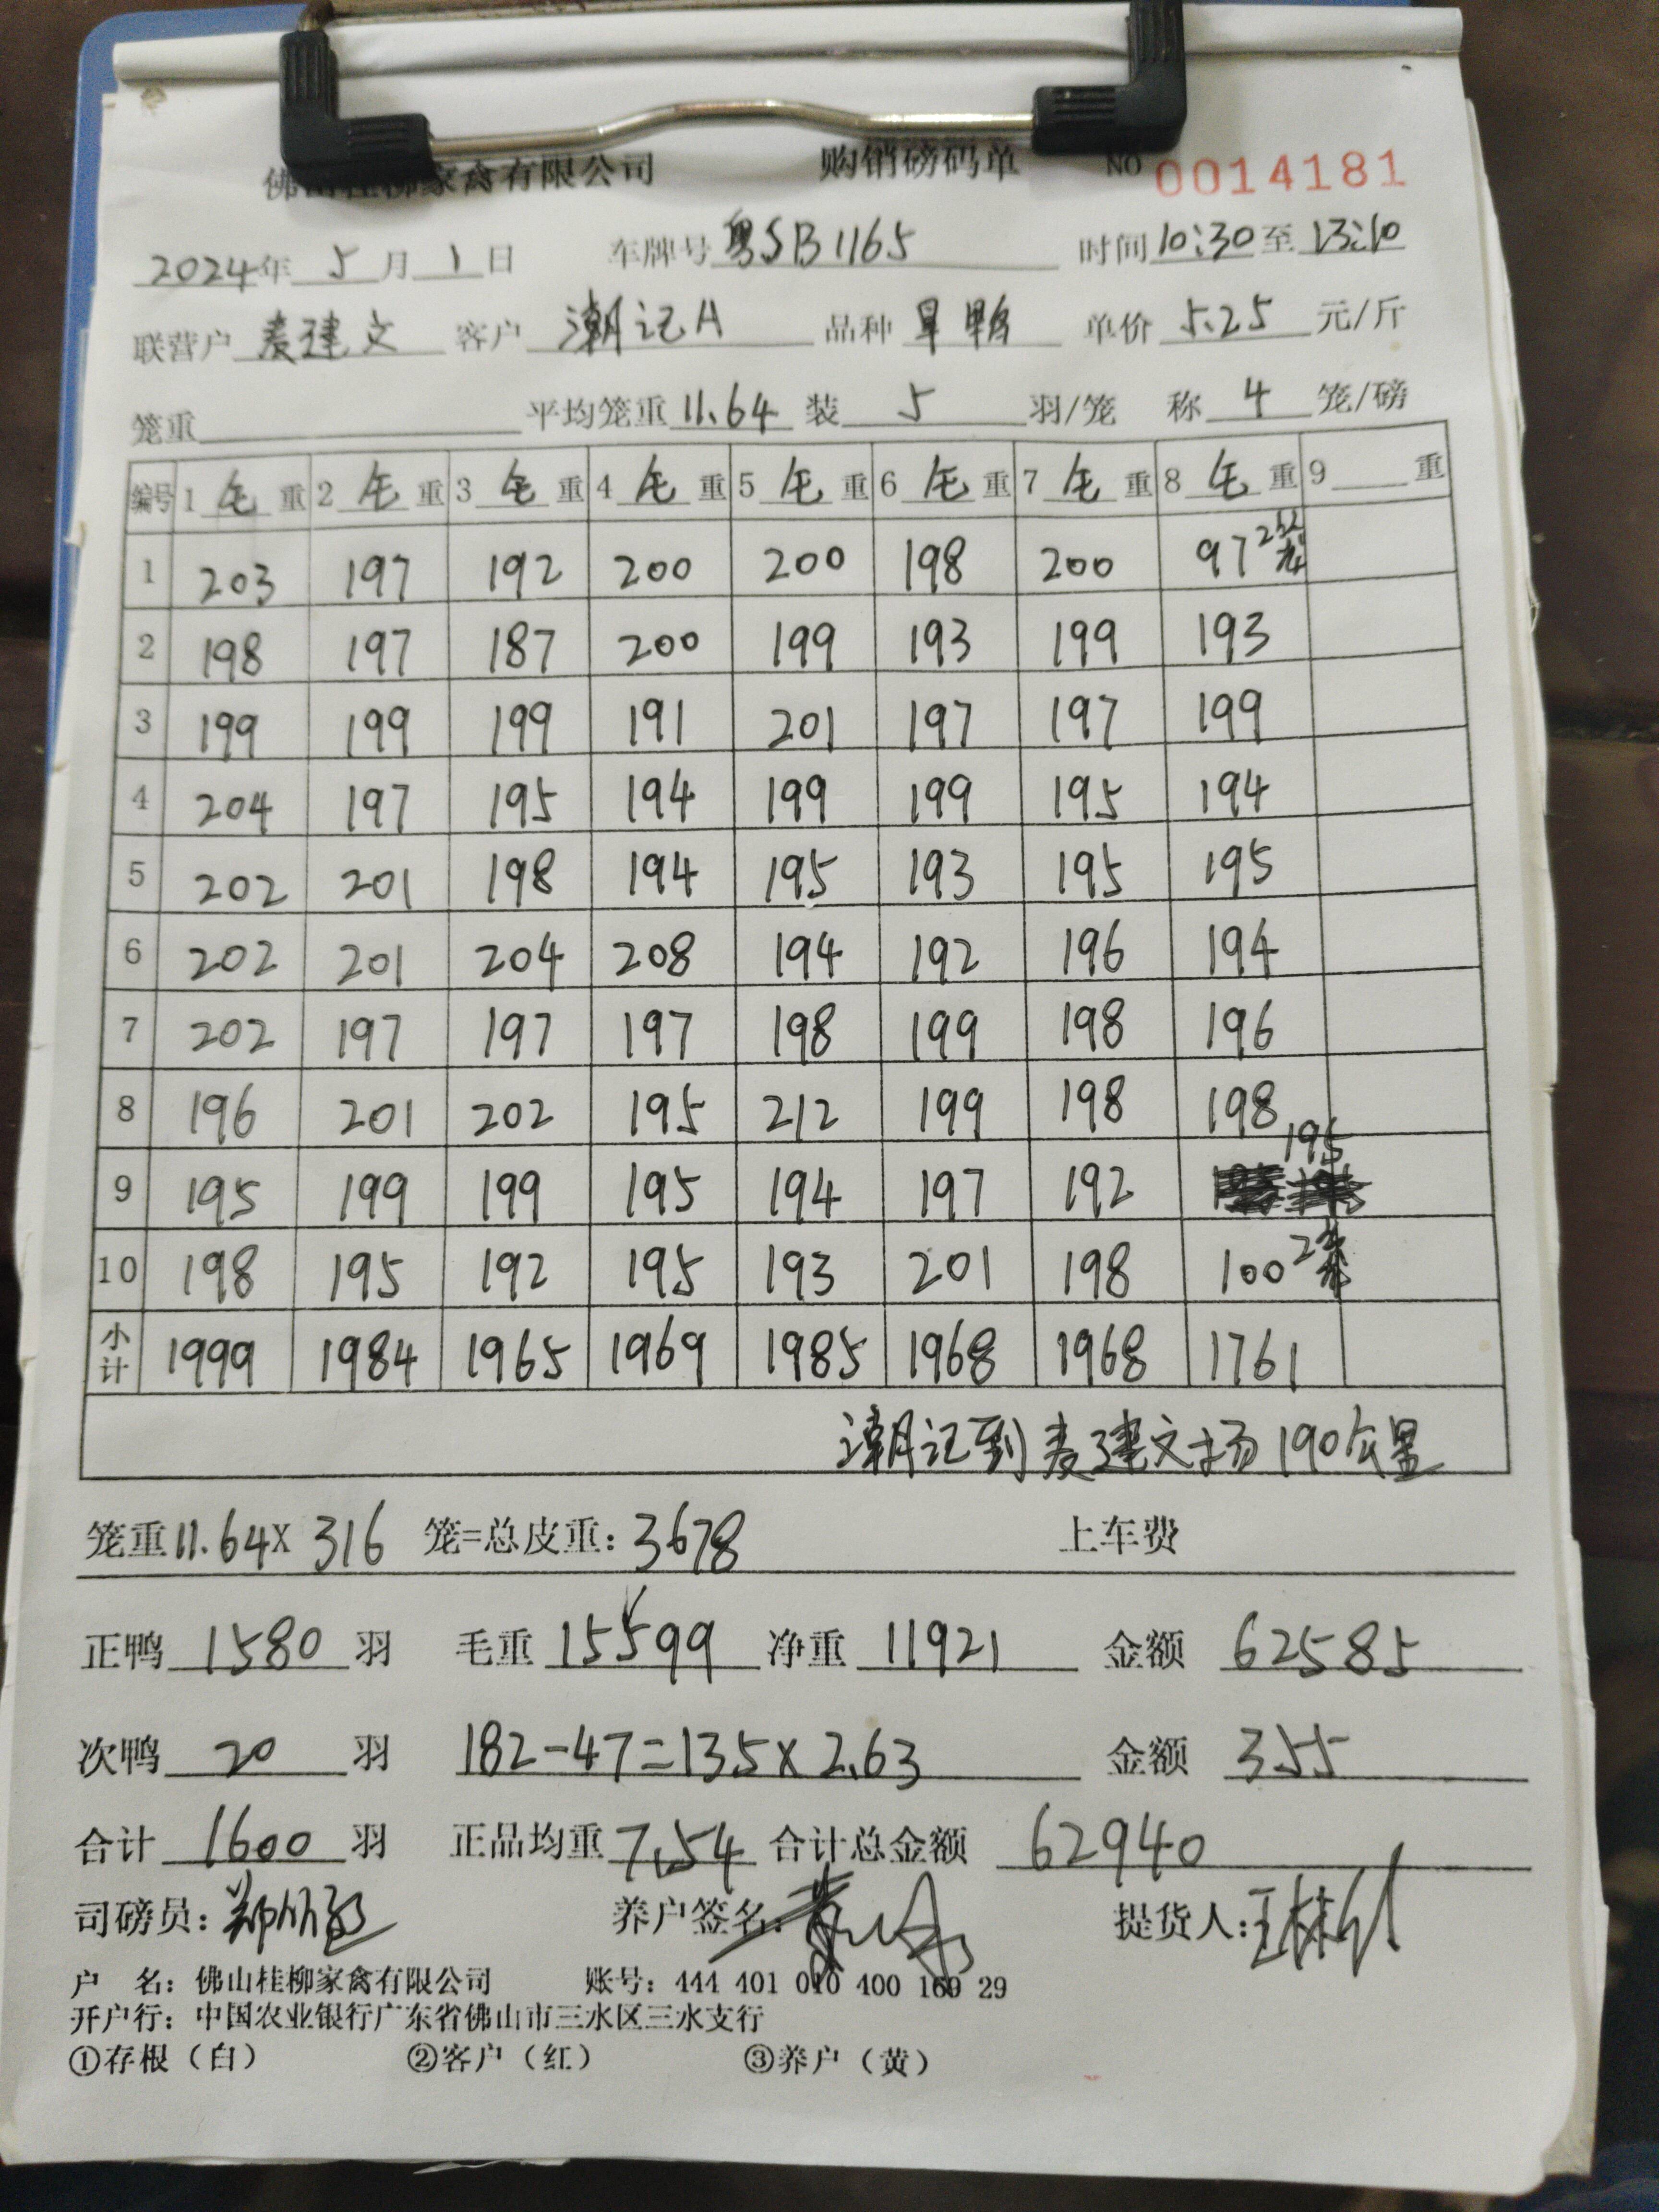 佛山桂柳家禽有限公司 购销磅码单 NO 0014181
2024年 5月 1日 车牌号 粤SB1165 时间 10:30 至 13:10
联营户 麦建文 客户 潮记A 品种 旱鸭 单价 5.25 元/斤
笼重 平均笼重 11.64 装 5 羽/笼 称 4 笼/磅
编号 1 毛 重 2 毛 重 3 毛 重 4 毛 重 5 毛 重 6 毛 重 7 毛 重 8 毛 重 9 重
1 203 197 192 200 200 198 200 97 2笼
2 198 197 187 200 199 193 199 193
3 199 199 199 191 201 197 197 199
4 204 197 195 194 199 199 195 194
5 202 201 198 194 195 193 195 195
6 202 201 204 208 194 192 196 194
7 202 197 197 197 198 199 198 196
8 196 201 202 195 212 199 198 198
9 195 199 199 195 194 197 192 195
10 198 195 192 195 193 201 198 100 2笼
小计 1999 1984 1965 1969 1985 1968 1968 1761
潮记到麦建文场190公里
笼重 11.64 X 316 笼=总皮重: 3678 上车费
正鸭 1580 羽 毛重 15599 净重 11921 金额 62585
次鸭 20 羽 182-47=135x2.63 金额 355
合计 1600 羽 正品均重 7.54 合计总金额 62940
司磅员: 养户签名: 提货人:
户 名：佛山桂柳家禽有限公司 账号：444 401 040 400 169 29
开户行：中国农业银行广东省佛山市三水区三水支行
①存根（白） ②客户（红） ③养户（黄）